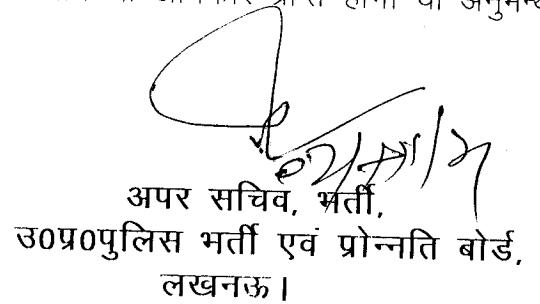 प्राप्त होगा या
अपर सचिव, भर्ती,
उ०प्र०पुलिस भर्ती एवं प्रोन्नति बोर्ड,
लखनऊ।